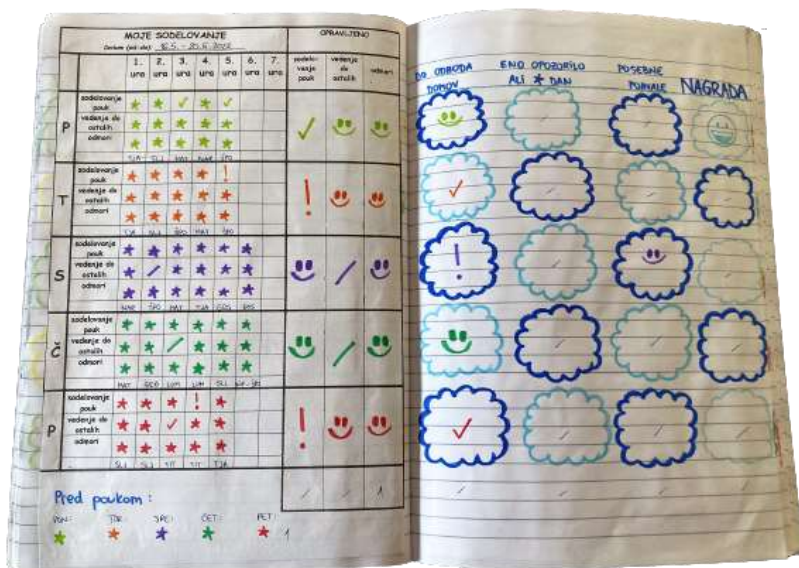 MOJE SODELOVANJE
OPRAVLJENO
Datum (od-do):
1. ura 2. ura 3. ura 4. ura 5. ura 6. ura 7. ura
sodelovanje pouk
vedenje do ostalih
odmori
P
sodelovanje pouk
vedenje do ostalih
odmori
T
sodelovanje pouk
vedenje do ostalih
odmori
S
sodelovanje pouk
vedenje do ostalih
odmori
MAT
Č
sodelovanje pouk
vedenje do ostalih
odmori
MAT GEO LUM LUM SLJ
P
sodelovanje pouk
vedenje do ostalih
odmori
SLJ SLJ TIT TIT TJA
/ / 1
Pred poukom:
PON: TOR: SRE: ČET: PET:
1
DO ODHODA DOMOV
ENO OPOZORILO ALI * DAN
POSEBNE POHVALE
NAGRADA